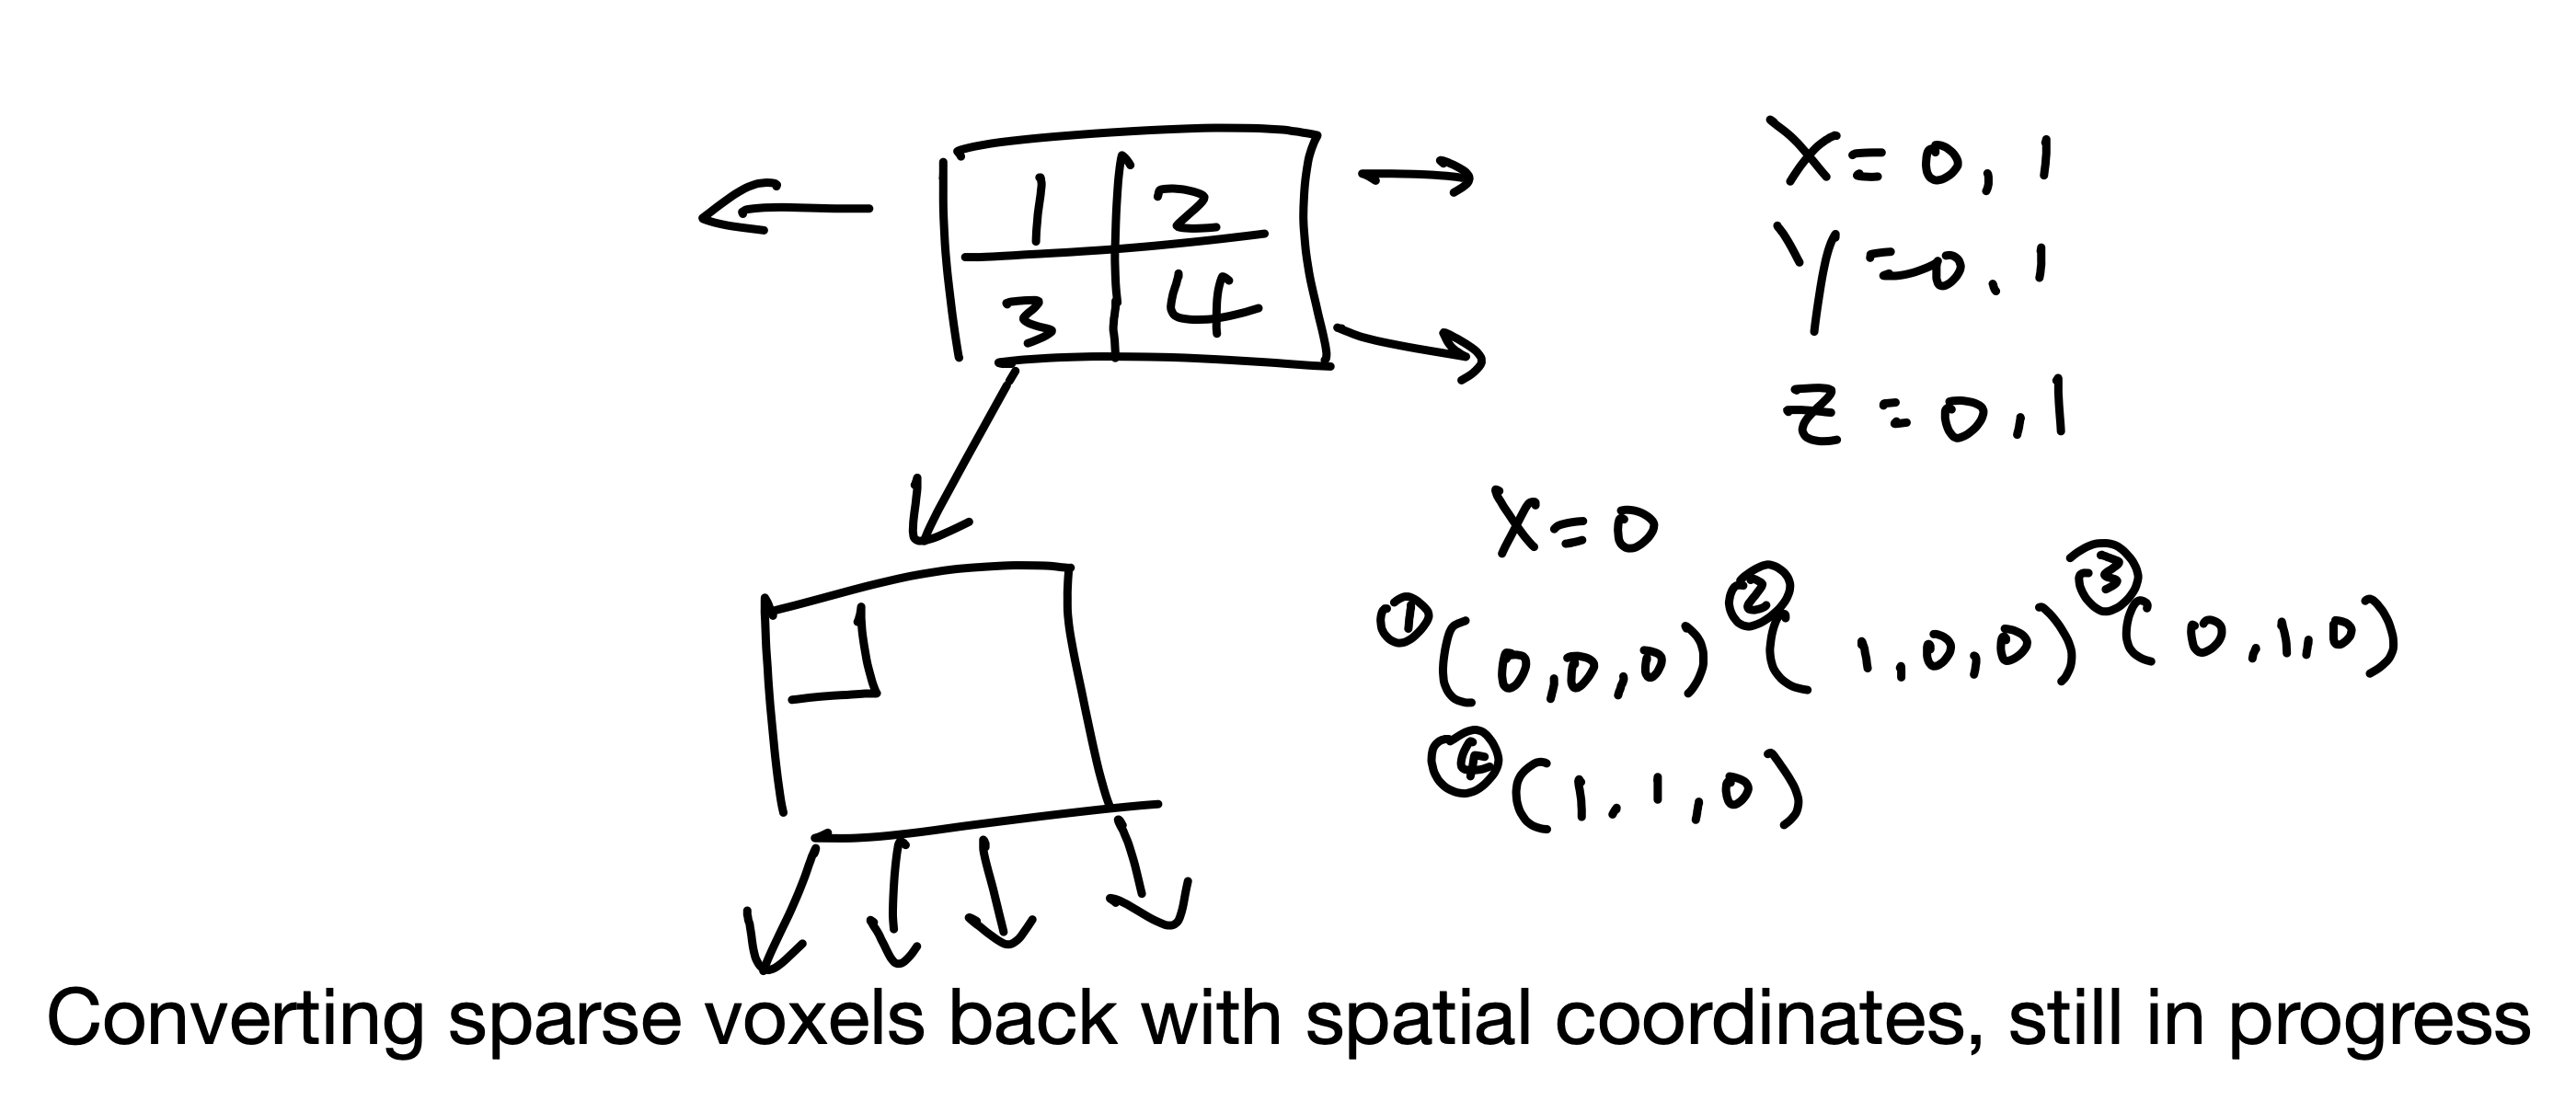 1 2
3 4
X = 0, 1
Y = 0, 1
Z = 0, 1
X = 0
① (0,0,0) ② (1,0,0) ③ (0,1,0)
④ (1,1,0)
Converting sparse voxels back with spatial coordinates, still in progress